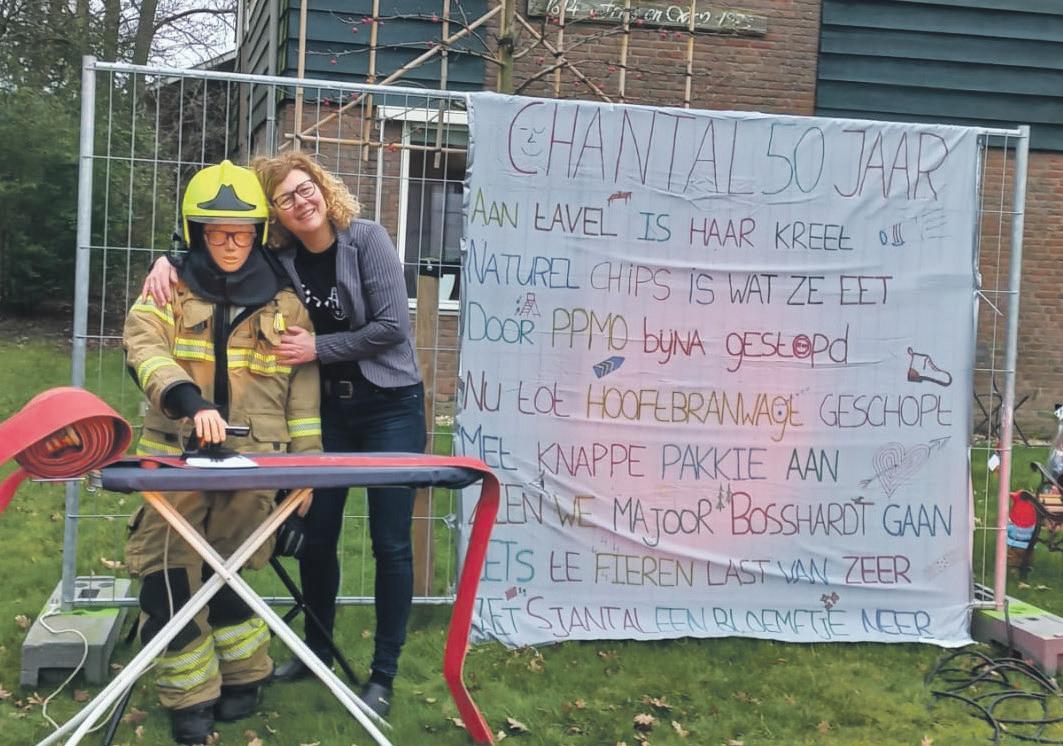 CHANTAL 50 JAAR
AAN tAVEL IS HAAR KREEt
NATUREL CHIPS IS WAT ZE EET
DOOR PPMO bijNA gEStOpd
NU tOt HOOFtBRANWAgt GESCHOPt
MEt KNAPPE PAKKIE AAN
WE MAJOOR BOSSHARDT GAAN
IETS tE FIEREN LAST VAN ZEER
ZET SJANTAL EEN BLOEMETJE NEER